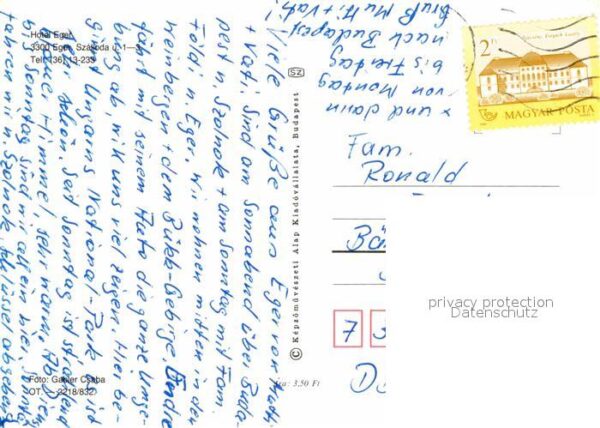 Hotel Eger
3300 Eger, Szálloda u. 1—3.
Tel.: (36) 13-233
Viele Grüße aus Eger von Mutti
+ Vati. Sind am Sonnabend über Buda-
pest n. Szolnok + am Sonntag mit Fam.
Földi n. Eger. Wir wohnen mitten in den
Weinbergen + dem Bükk-Gebirge. Endre
fährt mit seinem Auto die ganze Umge-
bung ab, will uns viel zeigen. Hier be-
ginnt Ungarns National-Park + ist
schön. Seit Sonntag ist strahlend
blauer Himmel, sehr warm. Ab Diens
bis Sonntag sind wir allein hier, Sonntag
fahren wir n. Szolnok, Schlüssel abgeben
x und dann
von Montag
bis Freitag
nach Budapest
Gruß Mutti + Vati!
Foto: Gabler Csaba
OT. — 3218/832
SZ
© Képzőművészeti Alap Kiadóvállalata, Budapest
Ára: 3,50 Ft
2 Ft
MAGYAR POSTA
Fam.
Ronald
7
D
privacy protection
Datenschutz